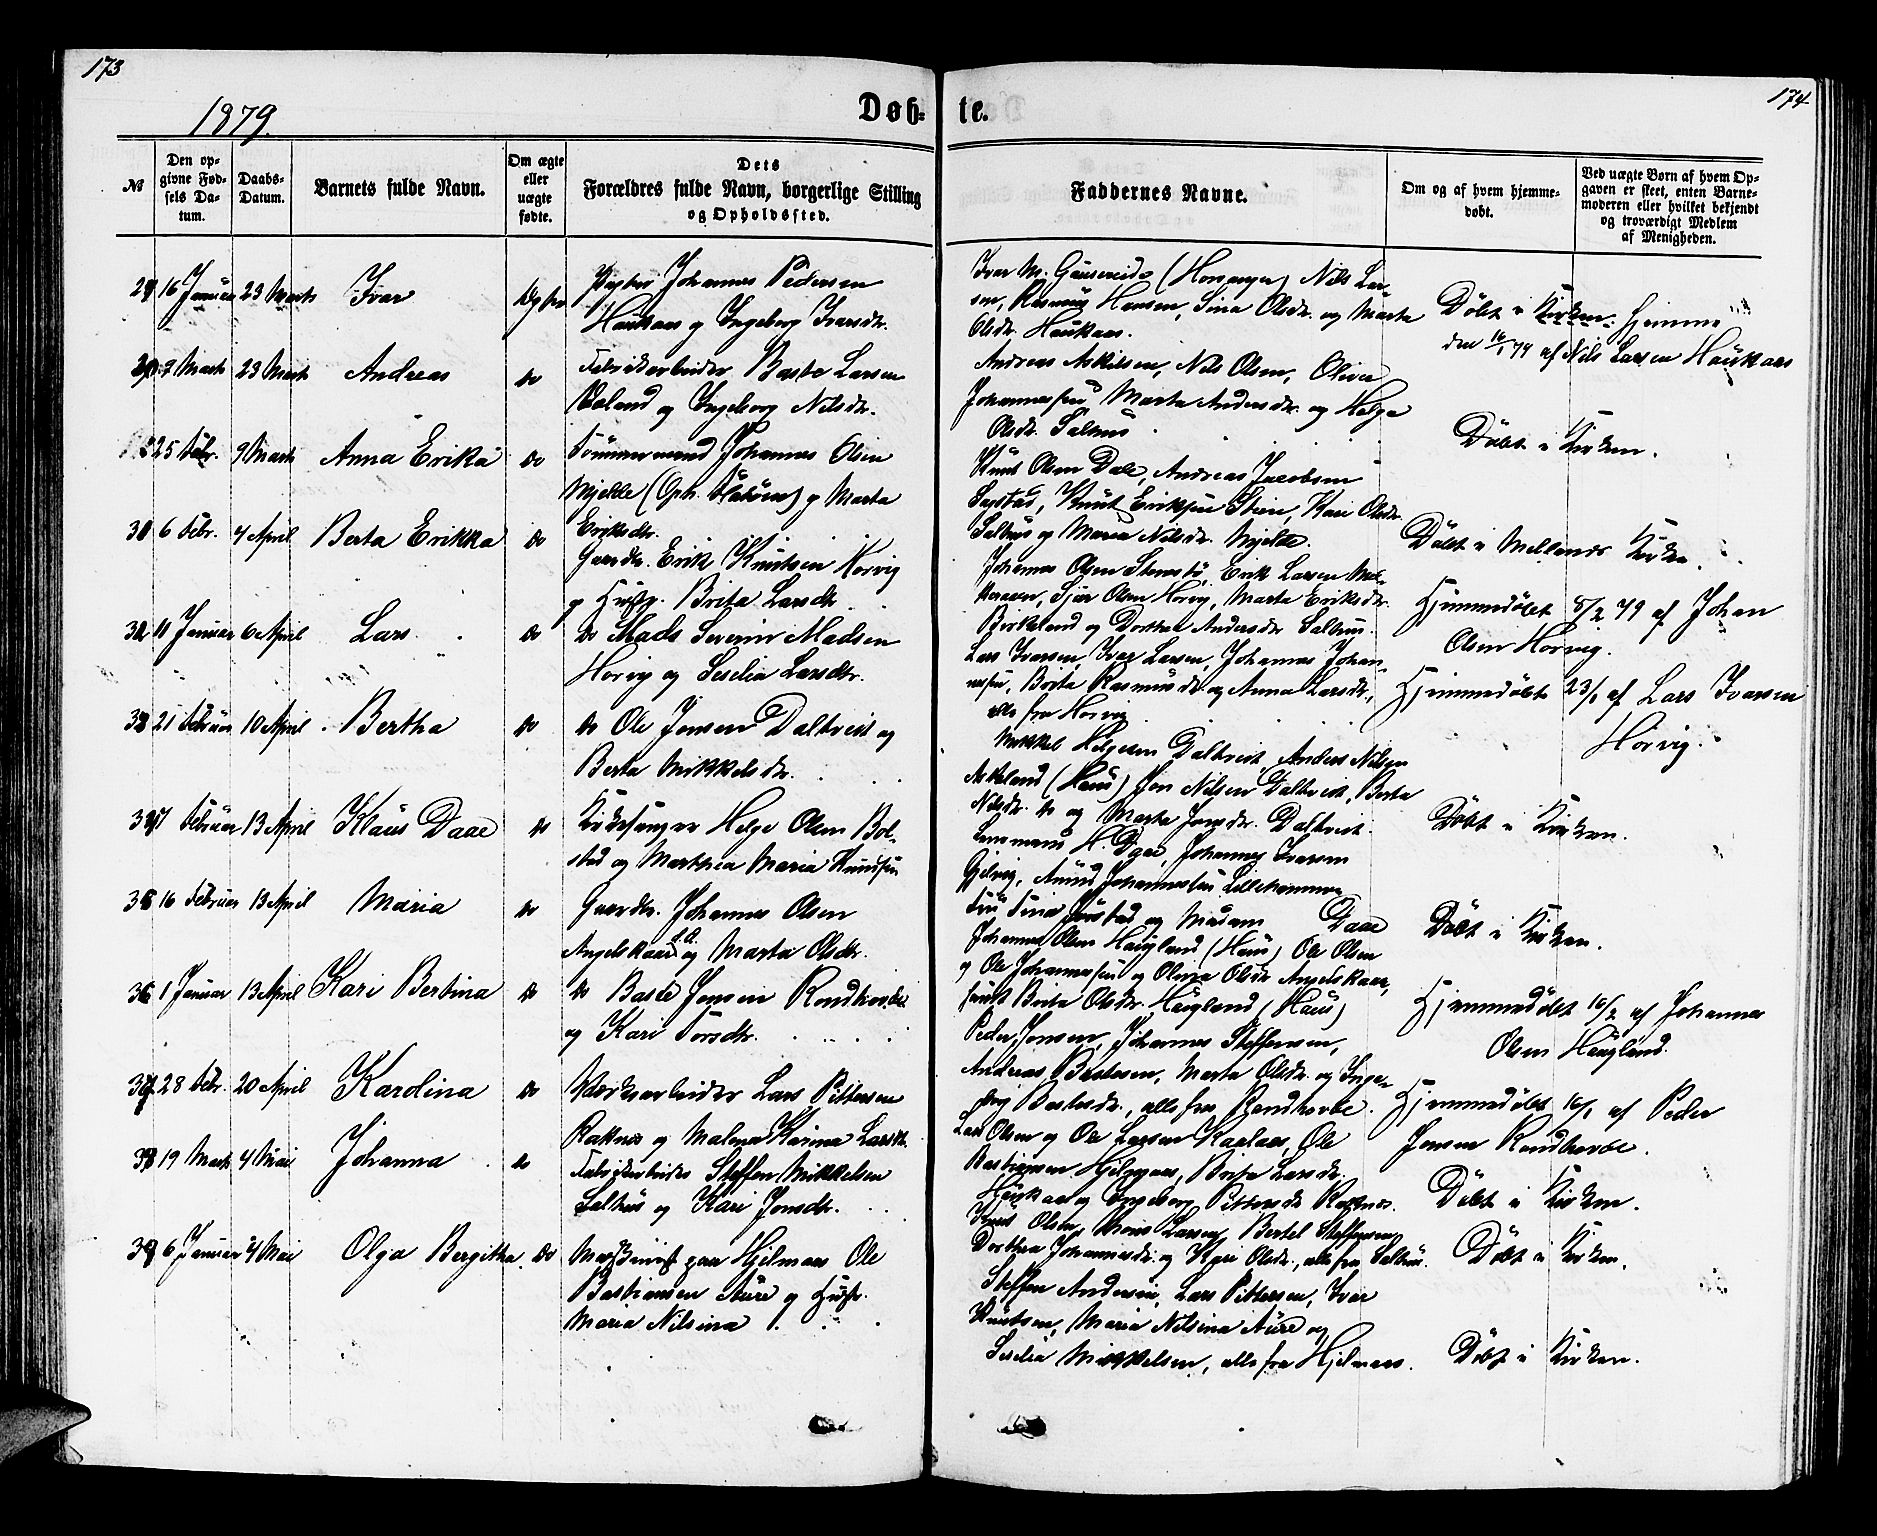 173
174
1879.
Døb- te.
№
Den op-
givne Fød-
sels Da-
tum.
Daabs-
Datum.
Barnets fulde Navn.
Om ægte
eller
uægte
fødte.
Dets
Forældres fulde Navn, borgerlige Stilling
og Opholdssted.
Faddernes Navne.
Om og af hvem hjemme-
døbt.
Ved uægte Børn af hvem Op-
gaven er skeet, enten Barne-
moderen eller hvilket bekjendt
og troværdigt Medlem
af Menigheden.
16 Januar 23 Marts Ivar
Johannes Pedersen
Haukaas og Ingeborg Ivarsdtr.
Ivar M. (Hosanger) Nils Lar-
sen, Rasmus Hansen, Sina Olsdr. og Marta
Olsdr. Haukaas.
Døbt i Kirken. hjemme
den 16/1 79 af Nils Larsen Haukaas
Marts 23 Marts Andreas do
Fabrikarbeider Baste Larsen
og Ingeborg Nilsdr.
Andreas Askilsen, Nils Olsen, Oliver
Johannessen Marta Andersdr. og Helga
Olsdr. Salhus
Døbt i Kirken.
25 Febr. 9 Marts Anna Erika do
Tømmermand Johannes Olsen
Mjelde (Oph. ) og Marta
Eriksdtr.
Knut Olsen Dale, Andreas Jacobsen
Knut Eriksen Kari Olsdr.
Salhus og Maria Nilsdr. Mjelde.
Døbt i Mellands Kirke.
6 Febr. 4 April Berta Erikka do
Gaardbr. Erik Knutsen Horvig
og Hustr. Brita Larsdtr.
Johannes Olsen Stensbø, Erik Larsen
Olsen Horvig, Marta Eriksdr.
Birkeland og Dorthea Andersdr Salhus.
Hjemmedøbt 8/2 79 af Johan
Olsen Horvig.
11 Januar 6 April Lars do
do Mads Severin Madsen
Horvig og Sesilia Larsdtr.
Lars Ivarsen, Ivar Larsen, Johannes Johan-
nessen, Berta Rasmusdr og Anna Larsdr.,
alle fra Horvig
Hjemmedøbt 23/1 af Lars Ivarsen
Horvig.
21 Februar 10 April Bertha do
do Ole Jonsen Daltveit og
Berta Mikkelsdr.
Mikkel Helgesen Daltveit, Anders Nilsen
Askeland (Haus) Jon Nilsen Daltveit, Berta
Nilsdr. do og Marta Jonsdr. Daltveit.
Døbt i Kirken.
Februar 13 April Klaus Daae do
Kirkesanger Helge Olsen Bol-
stad og Marthea Maria Knudsen
Lensmand H. Daae, Johannes Ivarsen
Gjelvig, Amund Johannessen Lillehammer
Fru Tina og Madam Daae
Døbt i Kirken.
16 Februar 13 April Maria do
Gaardbr. Johannes Olsen
Angelskaar og Marta Olsdr.
Johannes Olsen Haugland (Haus) Ole Olsen
og Ole Johannessen og Oline Olsdr Angelskaar,
samt Brita Olsdr. Haugland (Haus)
Hjemmedøbt 16/2 af Johannes
Olsen Haugland.
1 Januar 13 April Kari Bertina do
do Baste Jonsen Rondhovde
og Kari Torsdtr.
Peder Jonsen, Johannes Steffensen,
Andreas Bastesen, Marta Olsdr. og Inge-
borg Bastesdr., alle fra Rondhovde.
Hjemmedøbt 16/1 af Peder
Jonsen Rondhovde.
28 Febr. 20 April Karolina do
Værksarbeider Lars Pittersen
Raknes og Malena Karina Larsdr.
Lars Olsen og Ole Larsen Ole
Bastiansen Hjelmaas, Brita Larsdr.
Haukaas og Ingeborg Pittersdr Raknes.
Døbt i Kirken.
19 Marts 4 Mai Johanna do
Fabrikarbeider Steffen Mikkelsen
Salhus og Kari Jonsdtr.
Knut Olsen, Mons Larsen, Bertel Steffensen,
Dorthea Johannesdr. og Kari Olsdr., alle fra Salhus.
Døbt i Kirken.
6 Januar 4 Mai Olga Bergitha do
Maskinist paa Hjelmaas Ole
Bastiansen Aure og Hustr.
Maria Nilsina
Steffen Andersen, Lars Pittersen, Ivar
Knutsen, Maria Nilsina Aure og
Sesilia Mikkelsen, alle fra Hjelmaas.
Døbt i Kirken.